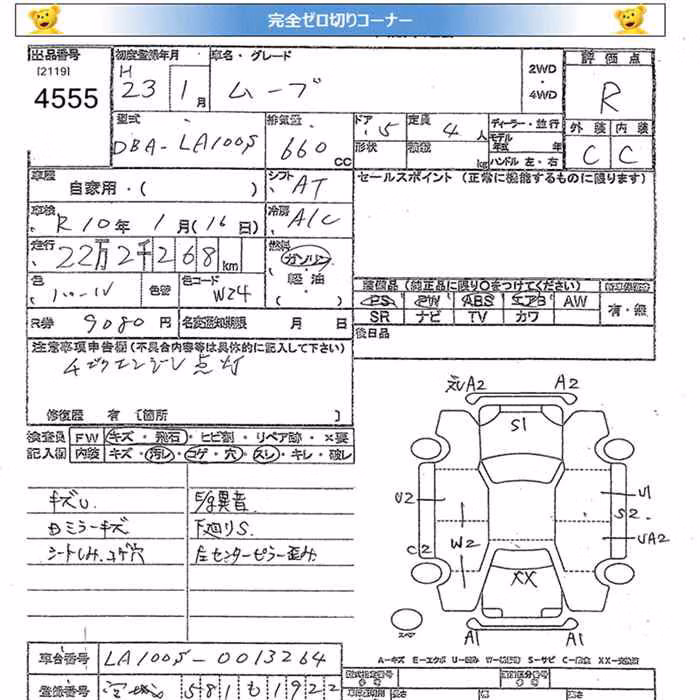 完全ゼロ切りコーナー
出品番号
[2119]
4555
初度登録年月
H 23 1月
車名・グレード
ムーブ
2WD
・
4WD
評価点
R
型式
DBA-LA100S
排気量
660 CC
ドア 5
定員 4人
形状
積載 kg
ディーラー・並行
モデル年式 年
ハンドル 左・右
外装 内装
C C
車歴
自家用・( )
シフト AT
セールスポイント (正常に機能するものに限ります)
車検
R10年 1月(16日)
冷房 A/C
走行
22万2千268km
燃料
ガソリン
軽油
( )
色
パール
色替
色コード
W24
装備品 (純正品に限り○をつけてください)
PS PW ABS エアB AW
SR ナビ TV カワ
有・無
R券 9080円
名変通知期限 月 日
後日品
注意事項申告欄 (不具合内容等は具体的に記入して下さい)
チェックエンジン点灯
修復歴 有 [箇所 ]
検査員記入欄
FW キズ・飛石・ヒビ割・リペア跡・×要
内装 キズ・汚レ・コゲ・穴・スレ・キレ・破レ
キズU.
Dミラーキズ
シートしみ.コゲ穴
E/g異音
下廻りS.
左センターピラー歪み.
元A2 A2
S1
U2 U1
S2.
C2 W2 UA2
XX
A1 A1
スペア
A-キズ E-エクボ U-凹み W-補修跡 S-サビ C-腐食 XX-交換済
車台番号 LA100S-0013264
登録番号 宮城 581 も 1922
型式指定番号
類別区分番号